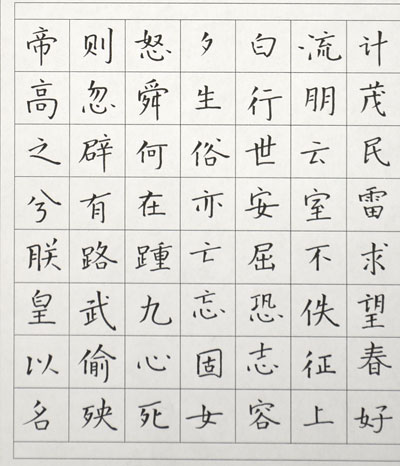 帝高之兮朕皇以名
则忽辟有路武偷殃
怒舜何在踵九心死
夕生俗亦亡忘固女
白行世安屈恐志容
流朋云室不佚征上
计茂民雷求望春好